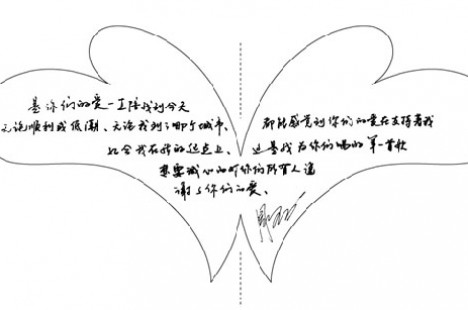 是你们的爱一直陪我到今天
无论顺利或低潮、无论我到了哪个城市、都能感觉到你们的爱在支持着我
我在新的起点上、这是我为你们唱的第一首歌
想要诚心的对你们所有人道
谢谢你们的爱、